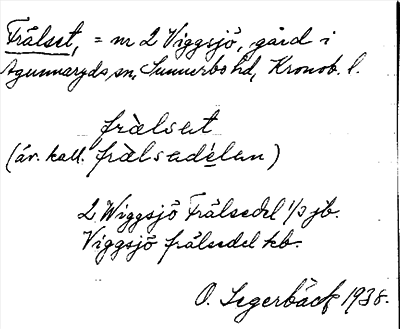 Frälset, = nr 2 Viggsjö, gård i
Agunnaryds sn, Sunnerbo hd, Kronob. l.
frälsat
(äv. kall. frälsadélan)
2 Wiggsjö Frälsedel 1/3 jb.
Viggsjö frälsedel kb.
O. Segerbäck 1938.